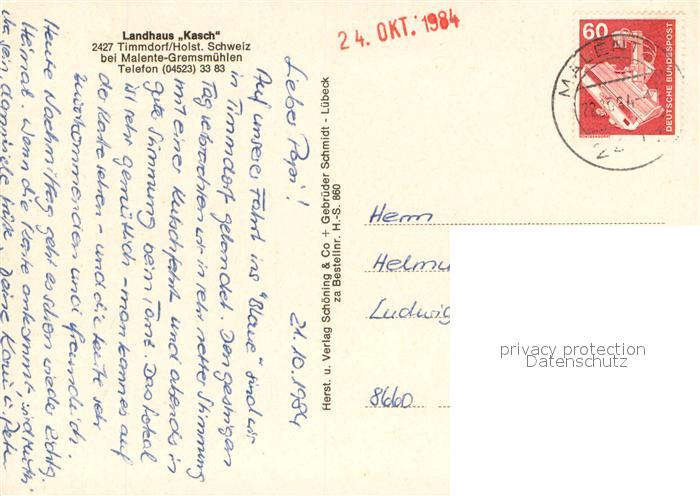 Landhaus „Kasch"
2427 Timmdorf/Holst. Schweiz
bei Malente-Gremsmühlen
Telefon (04523) 33 83
24. OKT. 1984
60
DEUTSCHE BUNDESPOST
MALENTE
Herst. u. Verlag Schöning & Co + Gebrüder Schmidt - Lübeck
za Bestellnr. H.-S. 860
21.10.1984
Lieber Papi!
Auf unserer Fahrt ins "Blaue" sind wir
in Timmdorf gelandet. Den gestrigen
Tag verbrachten wir in sehr netter Stimmung
mit einer Kutschfahrt und abends in
gute Stimmung beim Tanz. Das Lokal
ist sehr gemütlich - man kann es auf
der Karte sehen - und die Leute sehr
zuvorkommend und freundlich.
Heute Nachmittag geht es schon wieder Richtg.
Heimat. Wenn die Karte ankommt, wird
Deine u. Peter
Herrn
Helmu
Ludwig
8660
privacy protection
Datenschutz